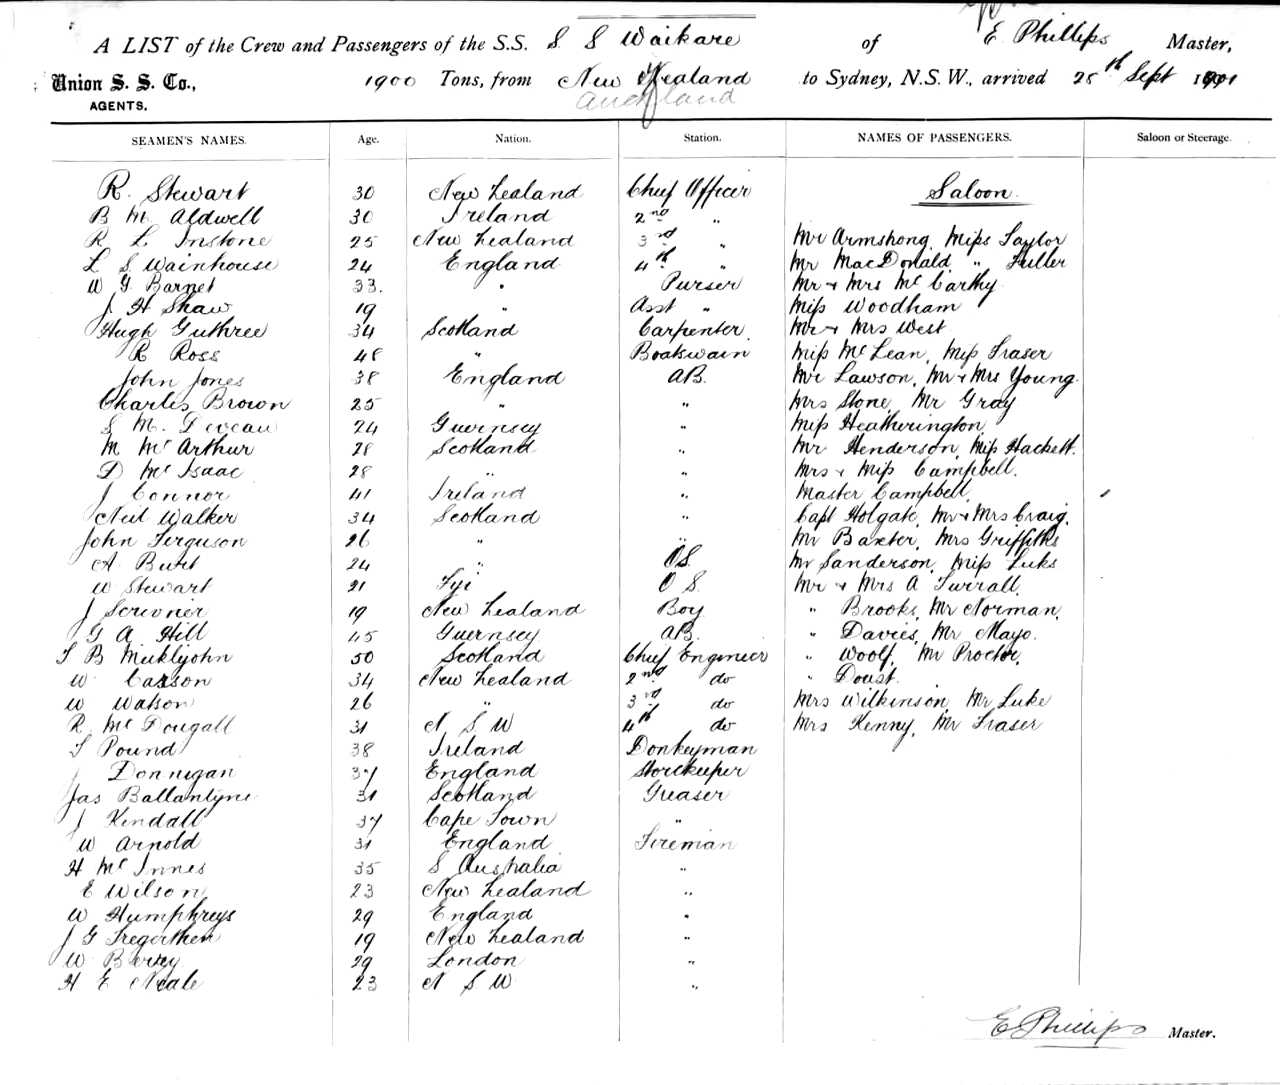 A LIST of the Crew and Passengers of the S.S. S S Waikare of E Phillips Master,
Union S. S. Co., 1900 Tons, from New Zealand to Sydney, N.S.W., arrived 25th Sept 1901
AGENTS. Auckland
SEAMEN'S NAMES. Age. Nation. Station. NAMES OF PASSENGERS. Saloon or Steerage.
R. Stewart 30 New Zealand Chief Officer Saloon
B M Aldwell 30 Ireland 2nd "
R L Instone 25 New Zealand 3rd " Mr Armstrong, Miss Taylor
L S Wainhouse 24 England 4th " Mr MacDonald " Fuller
W G Barnet 33. " Purser Mr & Mrs McCarthy
J H Shaw 19 " Asst " Miss Woodham
Hugh Guthree 34 Scotland Carpenter Mr & Mrs West
R Ross 48 " Boatswain Miss McLean, Miss Fraser
John Jones 38 England AB. Mr Lawson, Mr & Mrs Young
Charles Brown 25 " " Mrs Stone, Mr Gray
S M. Deveau 24 Guernsey " Miss Heatherington
M McArthur 28 Scotland " Mr Henderson, Miss Hackett.
D McIsaac 28 " " Mrs & Miss Campbell.
J Connor 41 Ireland " Master Campbell
Neil Walker 34 Scotland " Capt Holgate, Mr & Mrs Craig.
John Ferguson 26 " " Mr Baxter, Mrs Griffiths
A Butt 24 " OS. Mr Sanderson, Miss Luks
W Stewart 21 Fiji O S. Mr & Mrs A Turrall.
J Scrivner 19 New Zealand Boy " Brooks, Mr Norman.
G A Hill 45 Guernsey AB. " Davies, Mr Mayo.
T B Micklejohn 50 Scotland Chief Engineer " Woolf, Mr Proctor,
W Casson 34 New Zealand 2nd do " Doust.
W Watson 26 " 3rd do Mrs Wilkinson, Mr Luke
R McDougall 31 N S W 4th do Mrs Kenny, Mr Fraser
T Pound 38 Ireland Donkeyman
J Donnigan 37 England Storekeeper
Jas Ballantyne 31 Scotland Greaser
J Kendall 37 Cape Town "
W Arnold 31 England Fireman
H McInnes 35 S Australia "
E Wilson 23 New Zealand "
W Humphreys 29 England "
J G Tregerthen 19 New Zealand "
W 29 London "
H E Neale 23 N S W "
E Phillips Master.